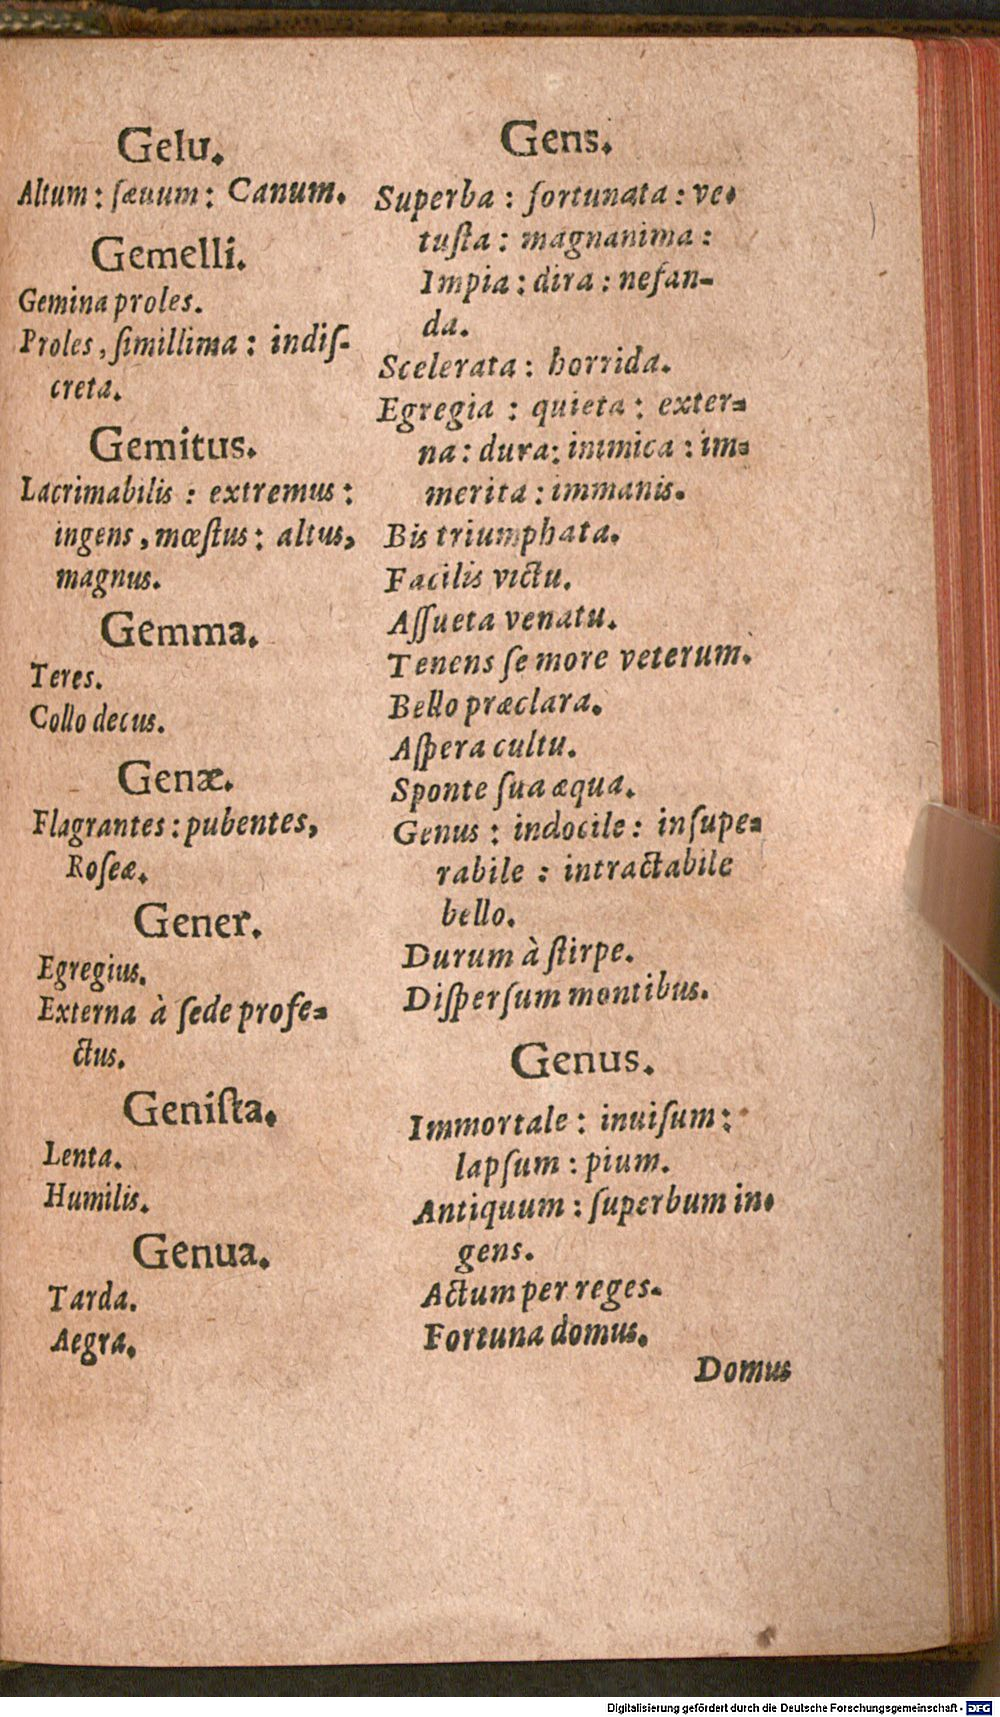 Gelu.
Altum : ſæuum : Canum.
Gemelli.
Gemina proles.
Proles, ſimillima : indiſ-
creta.
Gemitus.
Lacrimabilis : extremus :
ingens, mœſtus : altus,
magnus.
Gemma.
Teres.
Collo decus.
Genæ.
Flagrantes : pubentes,
Roſeæ.
Gener.
Egregius.
Externa à ſede profe-
ctus.
Geniſta.
Lenta.
Humilis.
Genua.
Tarda.
Aegra.
Gens.
Superba : fortunata : ve-
tuſta : magnanima :
Impia : dira : nefan-
da.
Scelerata : horrida.
Egregia : quieta : exter-
na : dura : inimica : im-
merita : immanis.
Bis triumphata.
Facilis victu.
Aſſueta venatu.
Tenens ſe more veterum.
Bello præclara.
Aſpera cultu.
Sponte ſua æqua.
Genus : indocile : inſupe-
rabile : intractabile
bello.
Durum à ſtirpe.
Diſperſum montibus.
Genus.
Immortale : inuiſum :
lapſum : pium.
Antiquum : ſuperbum in-
gens.
Actum per reges.
Fortuna domus.
Domus
Digitalisierung gefördert durch die Deutsche Forschungsgemeinschaft - DFG